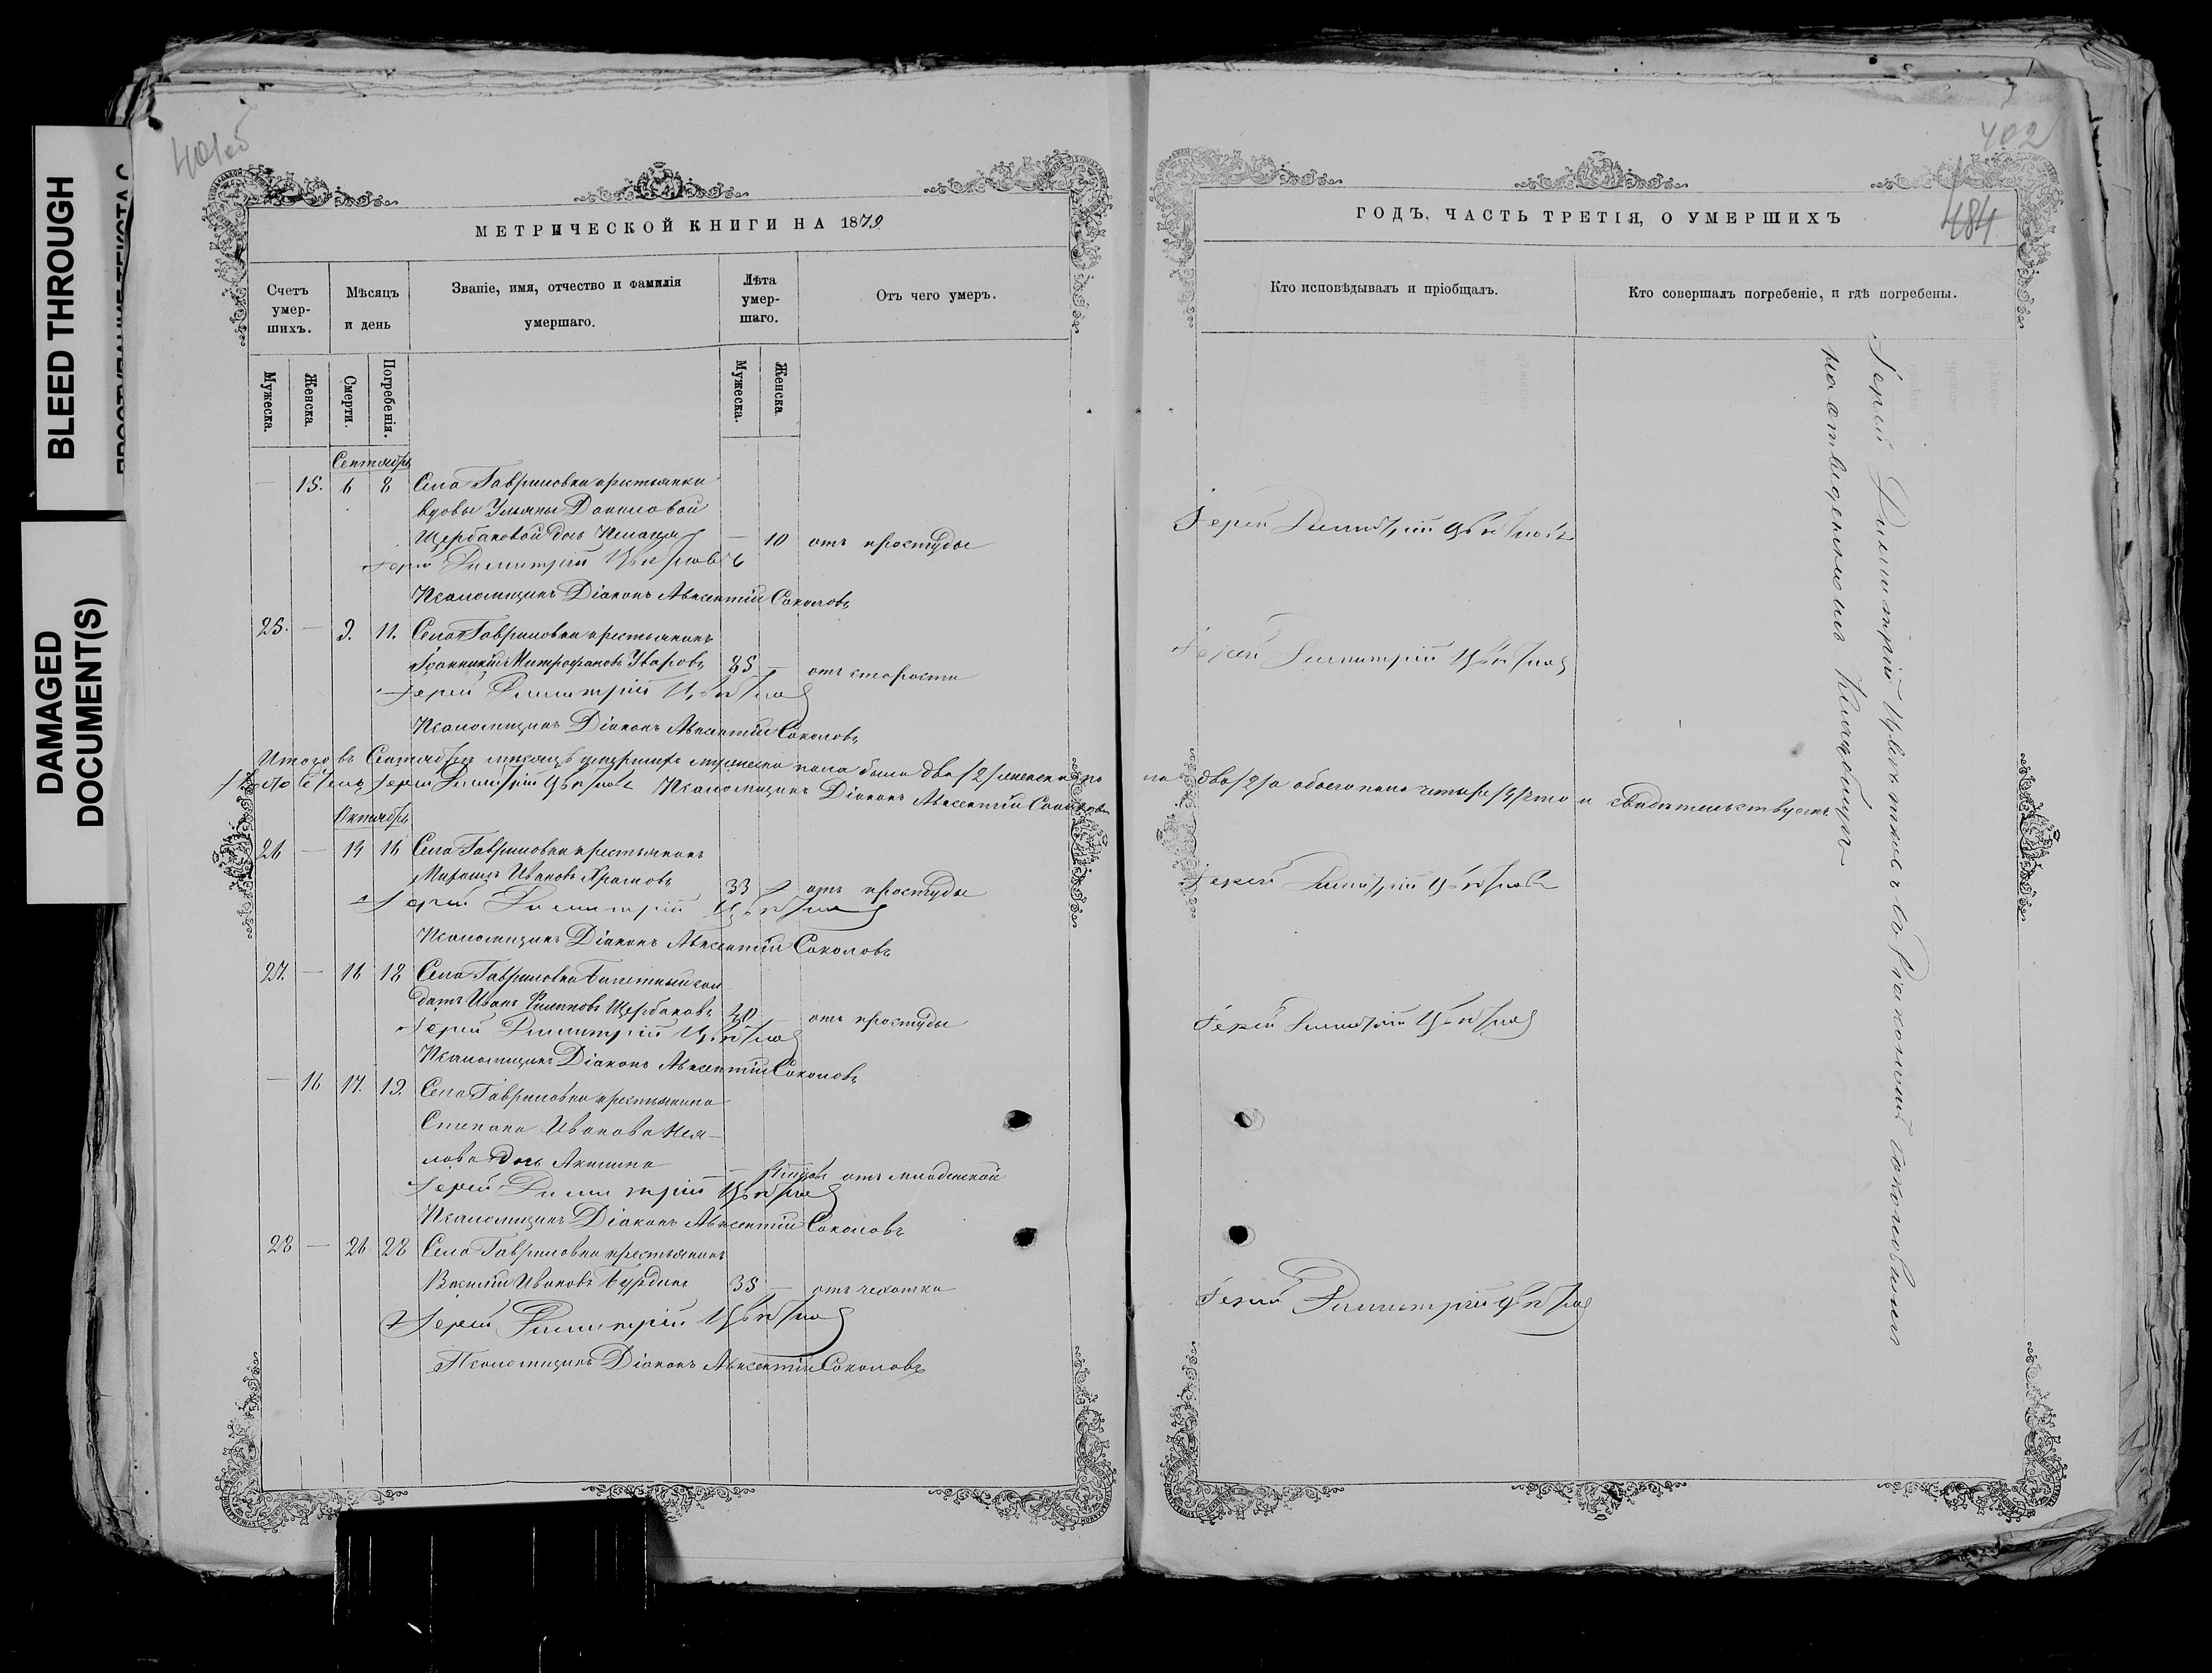 BLEED THROUGH
DAMAGED
DOCUMENT(S)
401об
МЕТРИЧЕСКОЙ КНИГИ НА 1879
Счетъ умер-шихъ.
Мѣсяцъ и день
Званіе, имя, отчество и фамилія умершаго.
Лѣта умер-шаго.
Отъ чего умеръ.
Мужеска.
Женска.
Смерти.
Погребенія.
Мужеска.
Женска.
Сентябрь
— 15. 6 8 Села Гавриловки крестьянки
вдовы Ульяны Даниловой
Щербаковой дочь — 10 отъ простуды
Іерей Димитрій Цвѣтковъ
Псаломщикъ Діаконъ Авксентій Соколовъ
25. — 9. 11. Села Гавриловки крестьянинъ
Іоанникій Митрофановъ Уваровъ 85 — отъ старости
Іерей Димитрій Цвѣтковъ
Псаломщикъ Діаконъ Авксентій Соколовъ
Итого въ Сентябрѣ мѣсяцѣ умершихъ мужеска пола было два /2/ женска по
Іерей Димитрій Цвѣтковъ Псаломщикъ Діаконъ Авксентій Соколовъ
Октябрь
26 — 14 16 Села Гавриловки крестьянинъ
Михаилъ Ивановъ Храмовъ 33 отъ простуды
Іерей Димитрій Цвѣтковъ
Псаломщикъ Діаконъ Авксентій Соколовъ
27. — 16 18 Села Гавриловки билетный сол-
датъ Иванъ Филиповъ Щербаковъ 40 — отъ простуды
Іерей Димитрій Цвѣтковъ
Псаломщикъ Діаконъ Авксентій Соколовъ
— 16 17. 19. Села Гавриловки крестьянина
Степана Иванова
дочь Акилина — отъ младенской
Іерей Димитрій Цвѣтковъ
Псаломщикъ Діаконъ Авксентій Соколовъ
28 — 26 28 Села Гавриловки крестьянинъ
Василій Ивановъ Бурдинъ 35 — отъ чахотки
Іерей Димитрій Цвѣтковъ
Псаломщикъ Діаконъ Авксентій Соколовъ
402
484
ГОДЪ, ЧАСТЬ ТРЕТІЯ, О УМЕРШИХЪ
Кто исповѣдывалъ и пріобщалъ.
Кто совершалъ погребеніе, и гдѣ погребены.
Іерей Димитрій Цвѣтковъ
Іерей Димитрій Цвѣтковъ
ла два /2/ а обоего пола четыре /4/ что и свидѣтельствуемъ
Іерей Димитрій Цвѣтковъ
Іерей Димитрій Цвѣтковъ
Іерей Димитрій Цвѣтковъ
Іерей Димитрій Цвѣтковъ съ Діакономъ Соколовымъ
на отведенномъ кладбищѣ